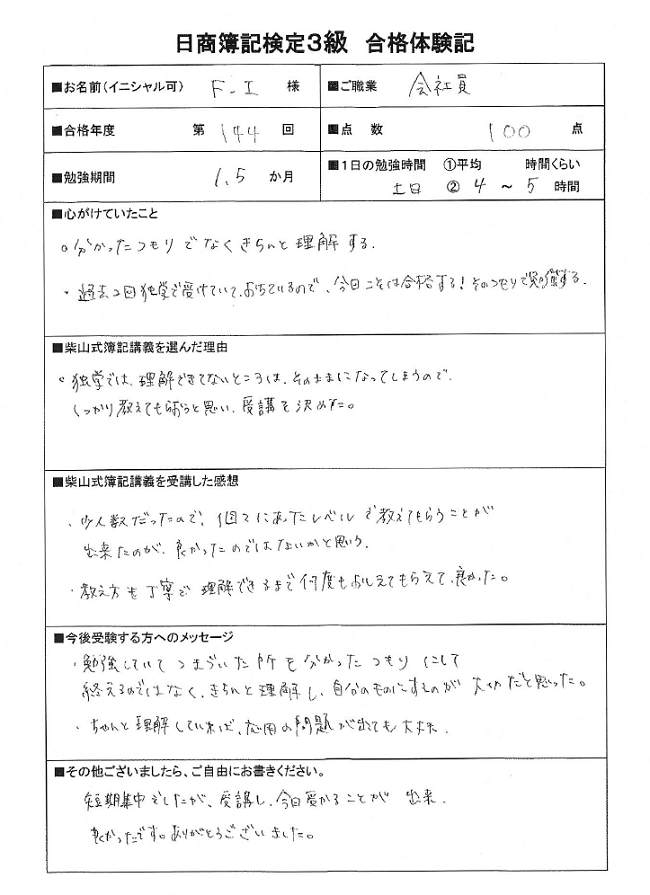 日商簿記検定3級 合格体験記
■お名前(イニシャル可) F.I 様
■ご職業 会社員
■合格年度 第 144 回
■点 数 100 点
■勉強期間 1.5 か月
■1日の勉強時間 ①平均 時間くらい
土日 ② 4 ～ 5 時間
■心がけていたこと
○分かったつもりでなくきちんと理解する.
・過去2回独学で受けていて、おちているので、今回こそは合格する!そのつもりで勉強する.
■柴山式簿記講義を選んだ理由
・独学では、理解できてないところは、そのままになってしまうので.
しっかり教えてもらおうと思い、受講を決めた。
■柴山式簿記講義を受講した感想
・少人数だったので、個々にあったレベルで教えてもらうことが
出来たのが、良かったのではないかと思う.
・教え方も丁寧で理解できるまで何度もおしえてもらえて、良かった。
■今後受験する方へのメッセージ
・勉強していてつまづいた所を分かったつもりにして
終えるのではなく、きちんと理解し、自分のものにするのが大切だと思った。
・ちゃんと理解していれば、応用の問題が出ても大丈夫.
■その他ございましたら、ご自由にお書きください。
短期集中でしたが、受講し、今回受かることが出来.
良かったです。ありがとうございました。